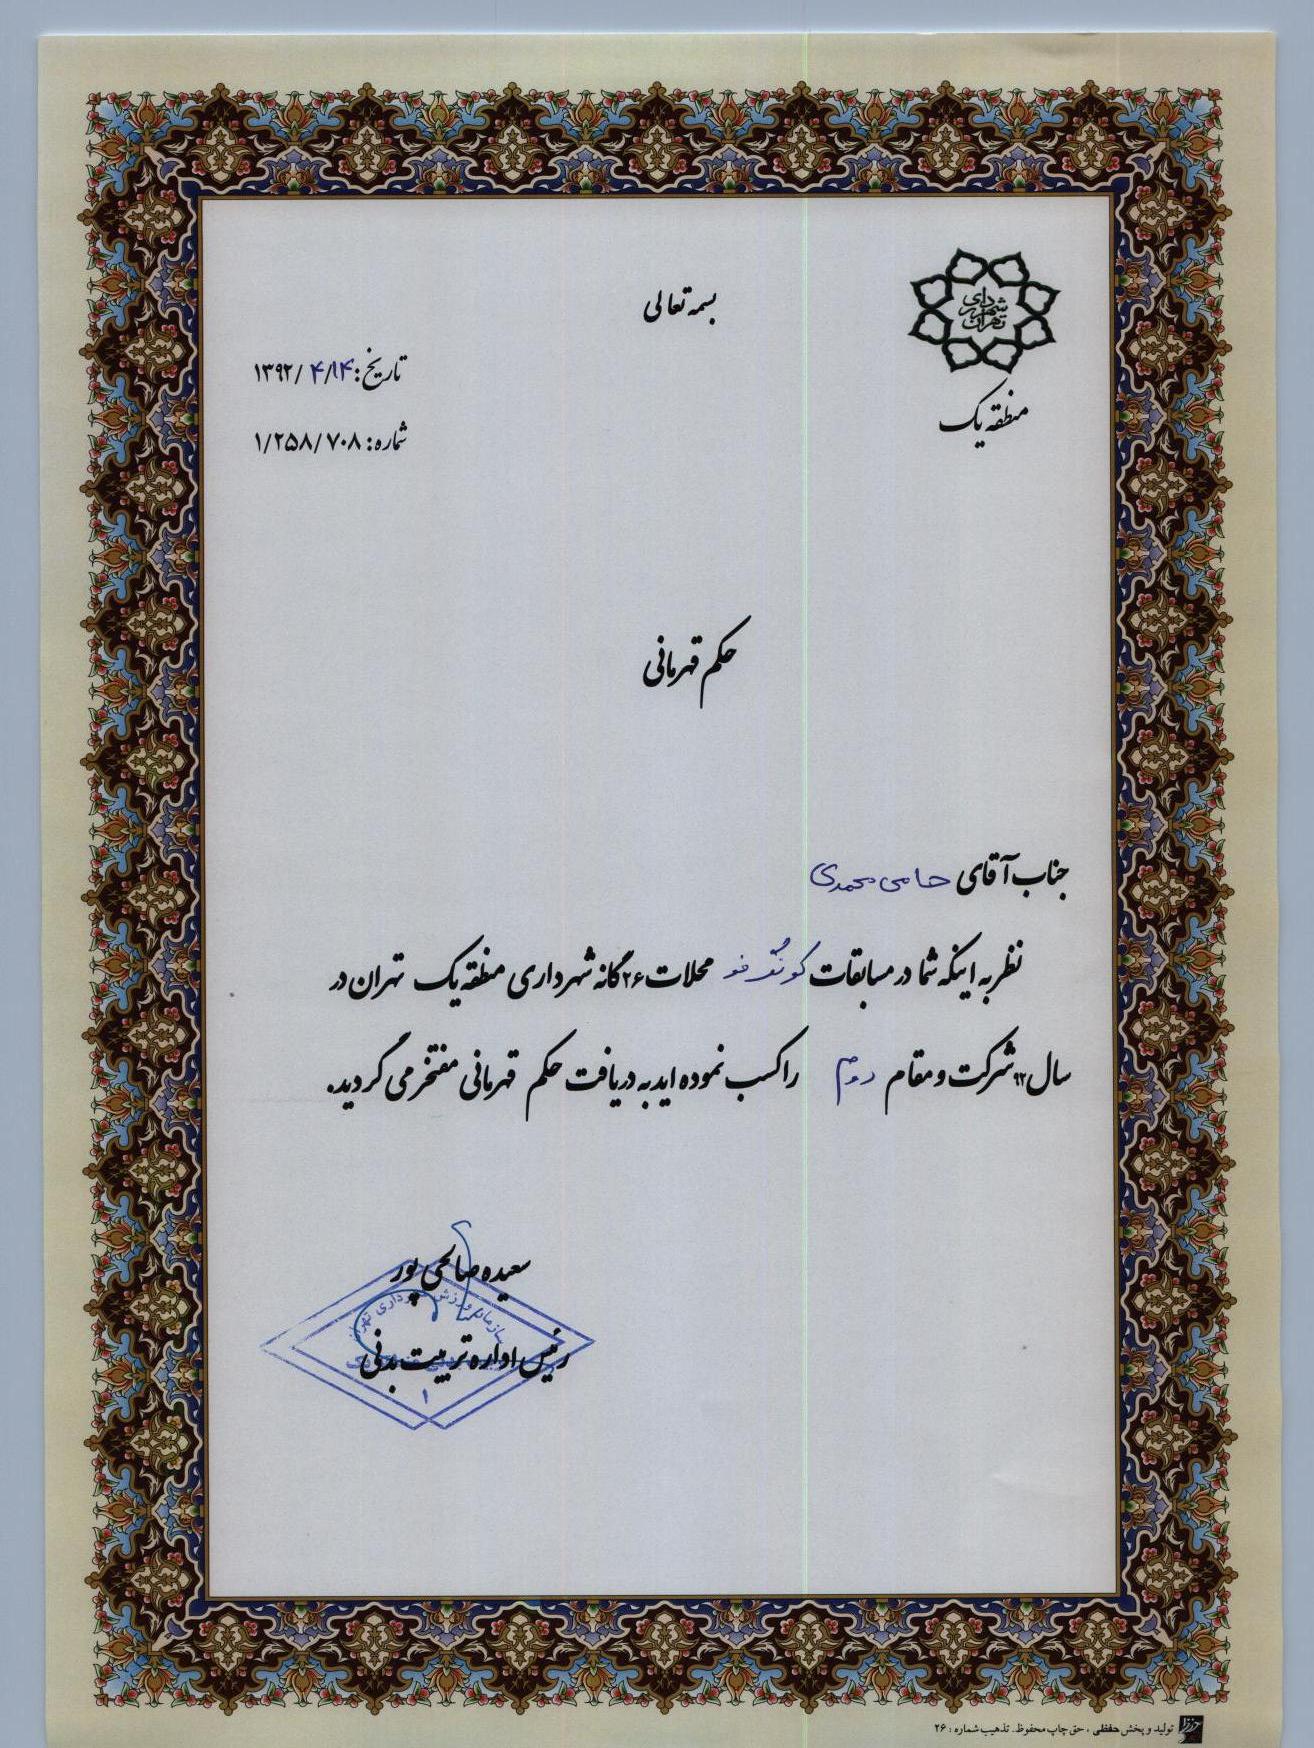 بسمه تعالی
شهرداری تهران
منطقه یک
تاریخ: ۱۳۹۲/۴/۱۴
شماره: ۱/۲۵۸/۷۰۸
حکم قهرمانی
جناب آقای حامی محمدی
نظر به اینکه شما در مسابقات کونگ فو محلات ۲۶ گانه شهرداری منطقه یک تهران در
سال ۹۲ شرکت و مقام دوم را کسب نموده اید به دریافت حکم قهرمانی مفتخر می گردید.
سعیده صالحی پور
سازمان ورزش شهرداری تهران
رئیس اداره تربیت بدنی
۱
تولید و پخش حفظی ، حق چاپ محفوظ. تذهیب شماره : ۲۶